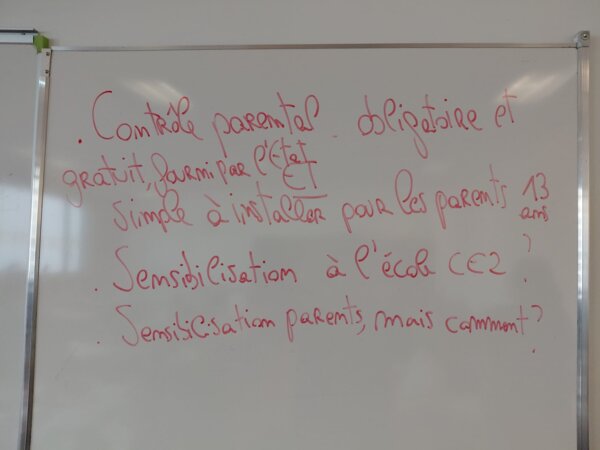 . Contrôle parental obligatoire et
gratuit, fourni par l'Etat
ET
simple à installer pour les parents 13 ans
. Sensibilisation à l'école CE2 ?
. Sensibilisation parents, mais comment ?